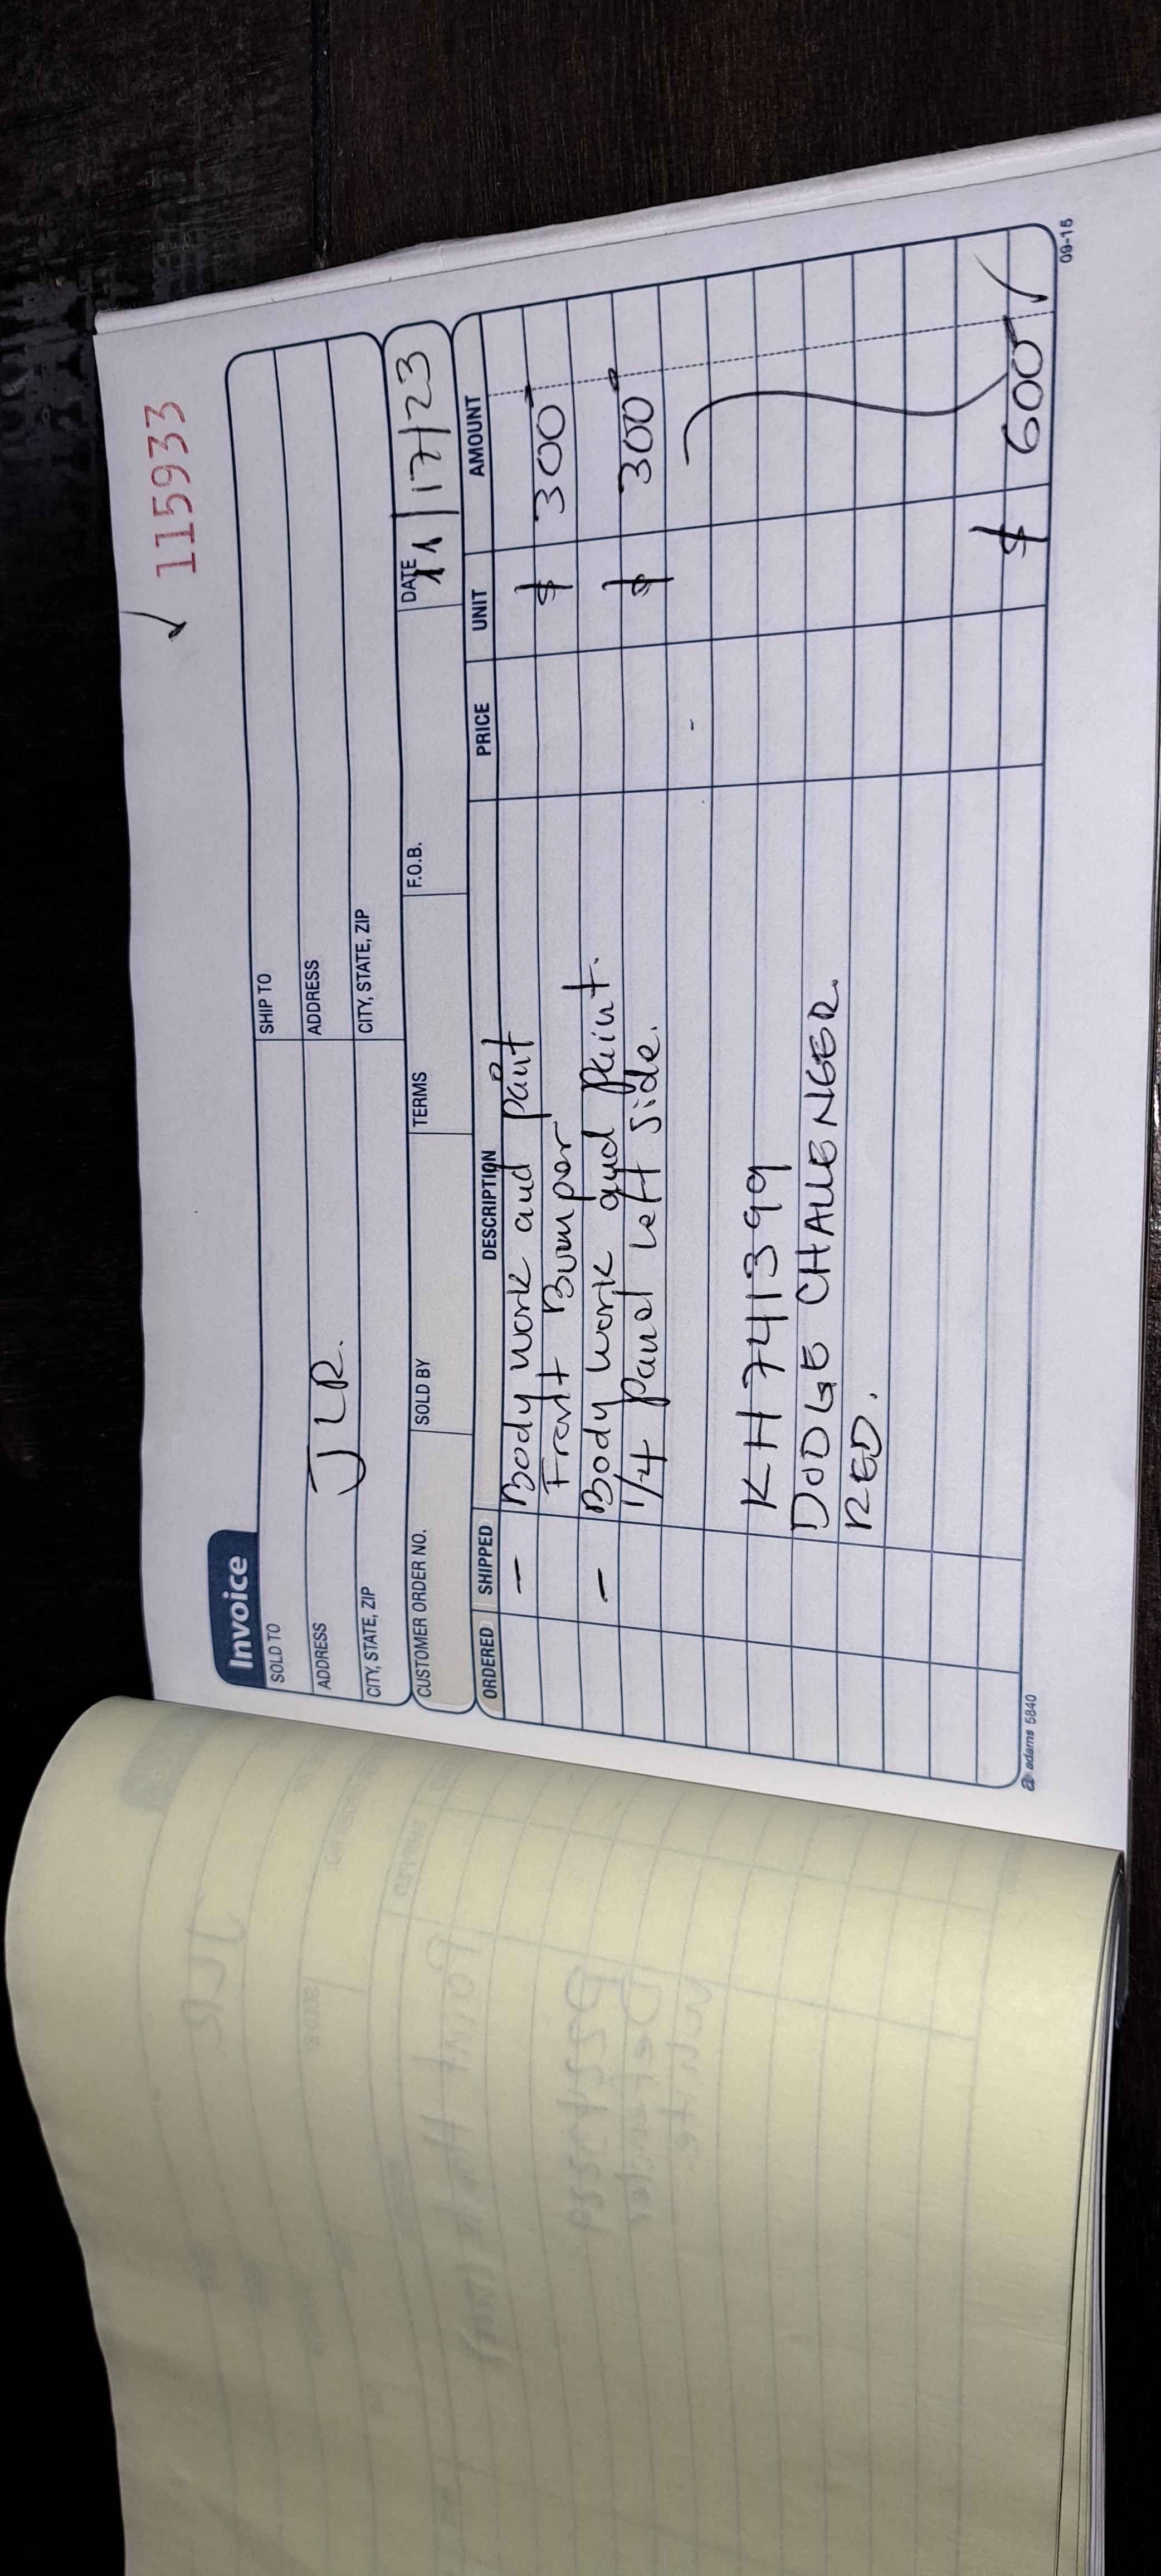 115933
Invoice
SOLD TO
SHIP TO
ADDRESS
JLR.
ADDRESS
CITY, STATE, ZIP
CITY, STATE, ZIP
CUSTOMER ORDER NO. SOLD BY TERMS F.O.B. DATE 11/17/23
ORDERED SHIPPED DESCRIPTION PRICE UNIT AMOUNT
- Body work and paint $ 300
Front Bumper
- Body work and paint. $ 300
1/4 panel left side.
KH741399
DODGE CHALLENGER.
RED.
$ 600
adams 5840
09-15